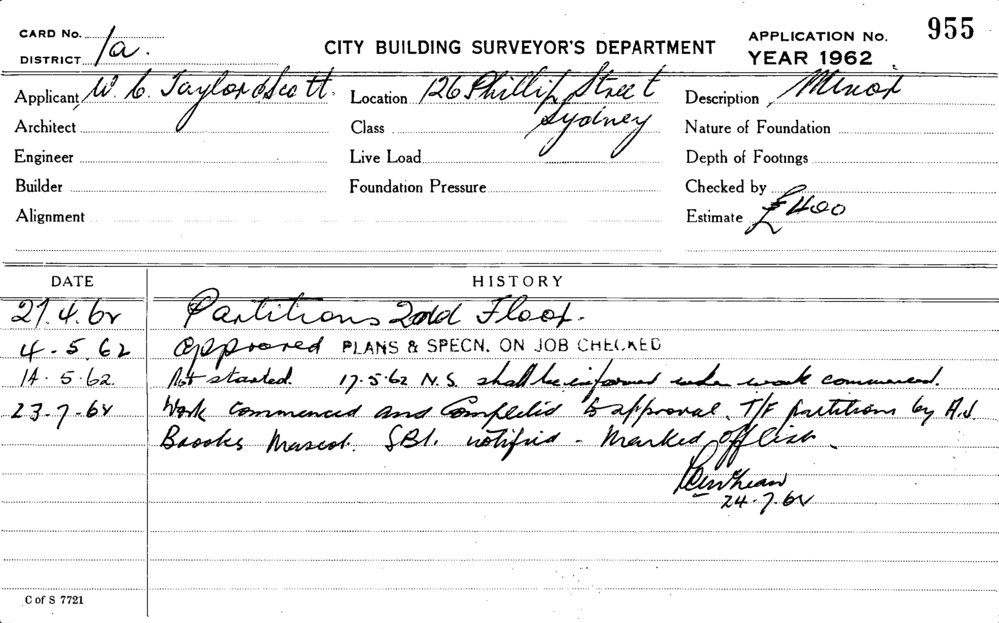 CARD No.
DISTRICT 1a.
CITY BUILDING SURVEYOR'S DEPARTMENT
APPLICATION No. 955
YEAR 1962
Applicant W. C. Taylor & Scott. Location 126 Phillip Street Description Minor
Architect Class Sydney Nature of Foundation
Engineer Live Load Depth of Footings
Builder Foundation Pressure Checked by
Alignment Estimate £400
DATE HISTORY
27.4.62 Partitions 2nd Floor.
4.5.62 approved PLANS & SPECN. ON JOB CHECKED
14.5.62. Not started. 17.5.62 N.S. shall be informed when work commenced.
23.7.62 Work commenced and Completed to approval. T/F partitions by A.J.
Brooks Mascot. SBI. notified - Marked off list.
24.7.62
C of S 7721